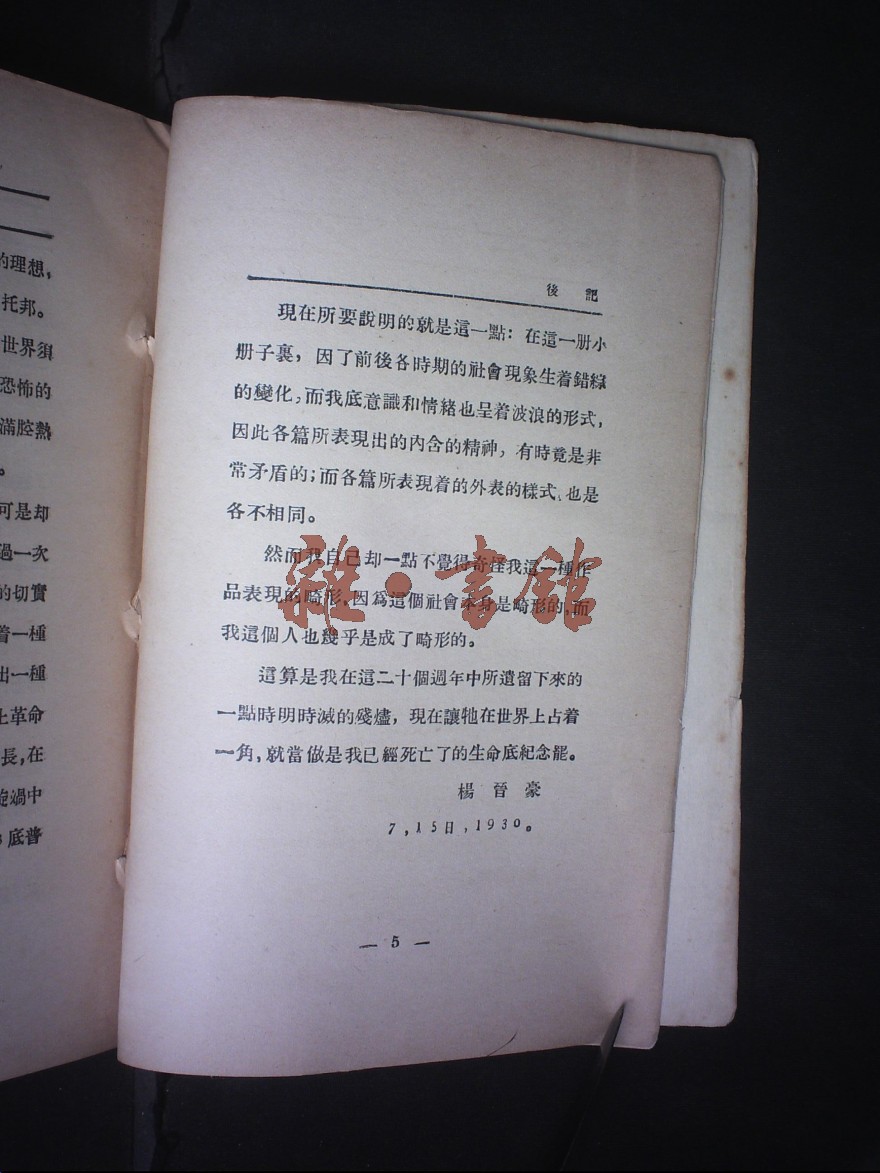 的理想，
托邦。
世界須
恐怖的
滿腔熱
。
可是却
過一次
的切實
着一種
出一種
上革命
長，在
旋渦中
底普
後記
現在所要說明的就是這一點：在這一册小
册子裏，因了前後各時期的社會現象生着錯綜
的變化，而我底意識和情緒也呈着波浪的形式，
因此各篇所表現出的內含的精神，有時竟是非
常矛盾的；而各篇所表現着的外表的樣式、也是
各不相同。
然而我自己却一點不覺得奇怪我這一種作
品表現的畸形，因爲這個社會本身是畸形的，而
我這個人也幾乎是成了畸形的。
這算是我在這二十個週年中所遺留下來的
一點時明時滅的殘燼，現在讓牠在世界上占着
一角，就當做是我已經死亡了的生命底紀念罷。
楊晉豪
7，15日，1930。
— 5 —
雜·書館